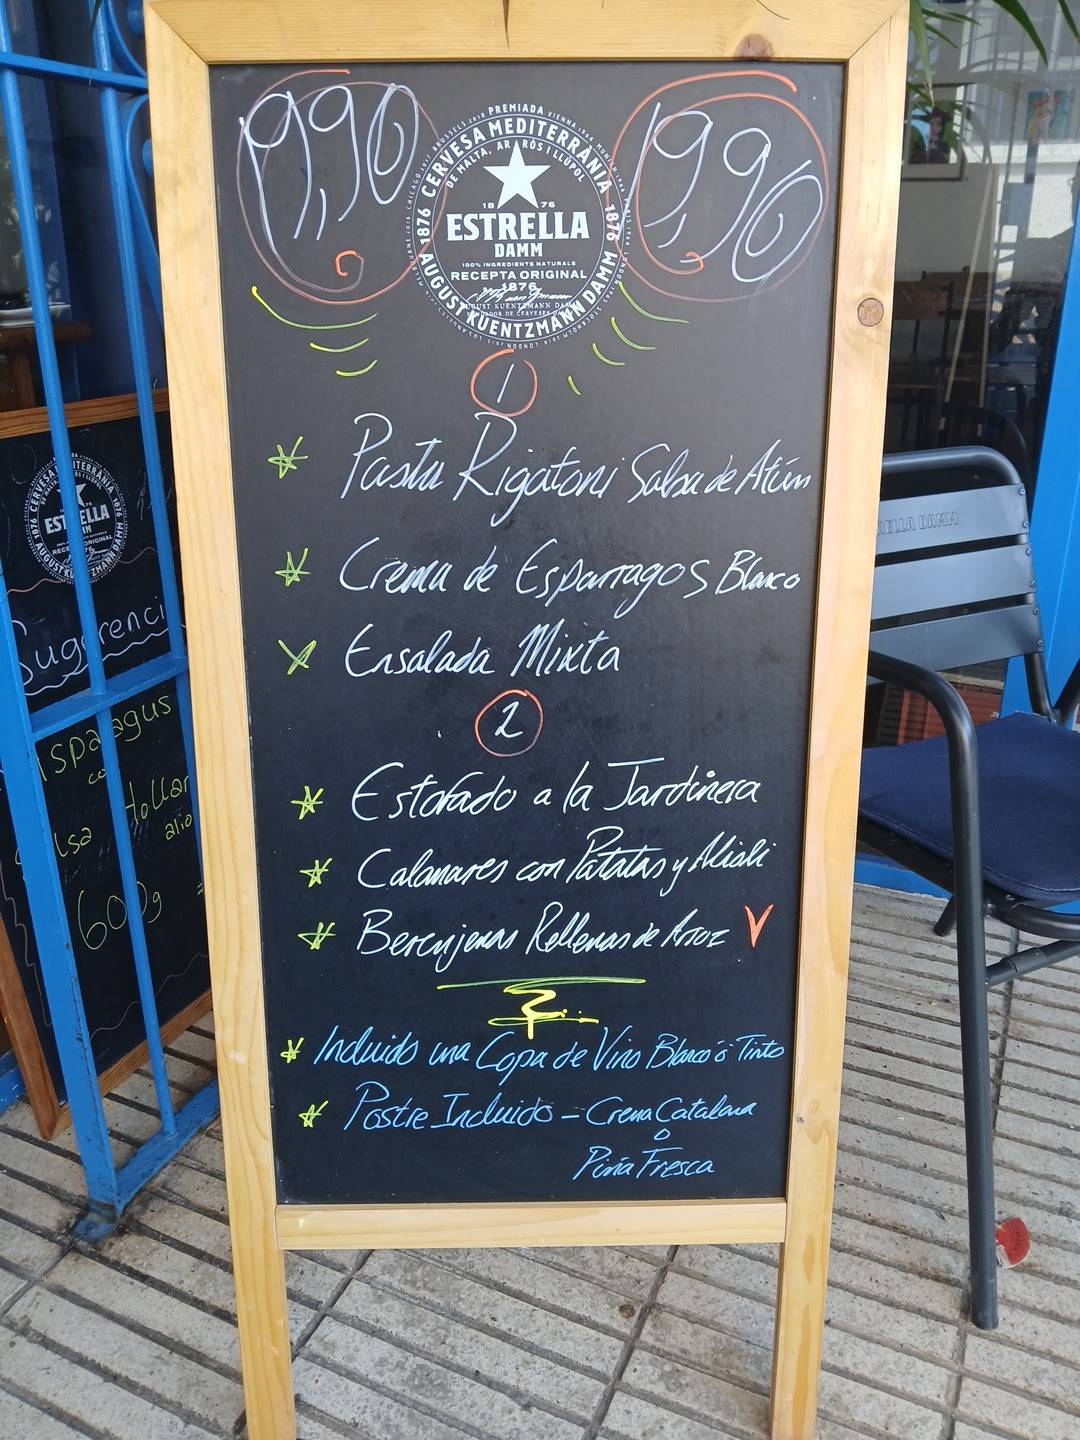 19,90
19,90
PREMIADA
CERVESA MEDITERRÀNIA
DE MALTA, ARRÒS I LLÚPOL
1876
1876
18 76
ESTRELLA
DAMM
100% INGREDIENTS NATURALS
RECEPTA ORIGINAL
1876
AUGUST KUENTZMANN DAMM
AUGUST KUENTZMANN DAMM
1
Pasta Rigatoni Salsa de Atún
Crema de Esparragos Blanco
Ensalada Mixta
2
Estofado a la Jardinera
Calamares con Patatas y Alioli
Berenjenas Rellenas de Arroz V
Incluido una Copa de Vino Blanco ó Tinto
Postre Incluido - Crema Catalana
o
Piña Fresca
CERVESA MEDITERRÀNIA
ESTRELLA
DAMM
AUGUST KUENTZMANN DAMM
Sugerenci
spa agus
co
Hollan
lsa
alio
600g
ELLA DAMM